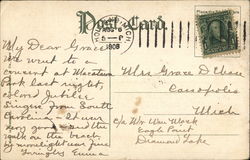 Post Card.
AUG 6
1908
My Dear Grace
We went to a
concert at Macatawa
Park last night,
colord Jubilee
Singers from South
Carolina. It was
very good and the
walk on the beach
by moonlight was fine
Lovingly Emma
Mrs Grace D
Cassopolis
Mich
c/o Wm
Eagle Point
Diamond Lake